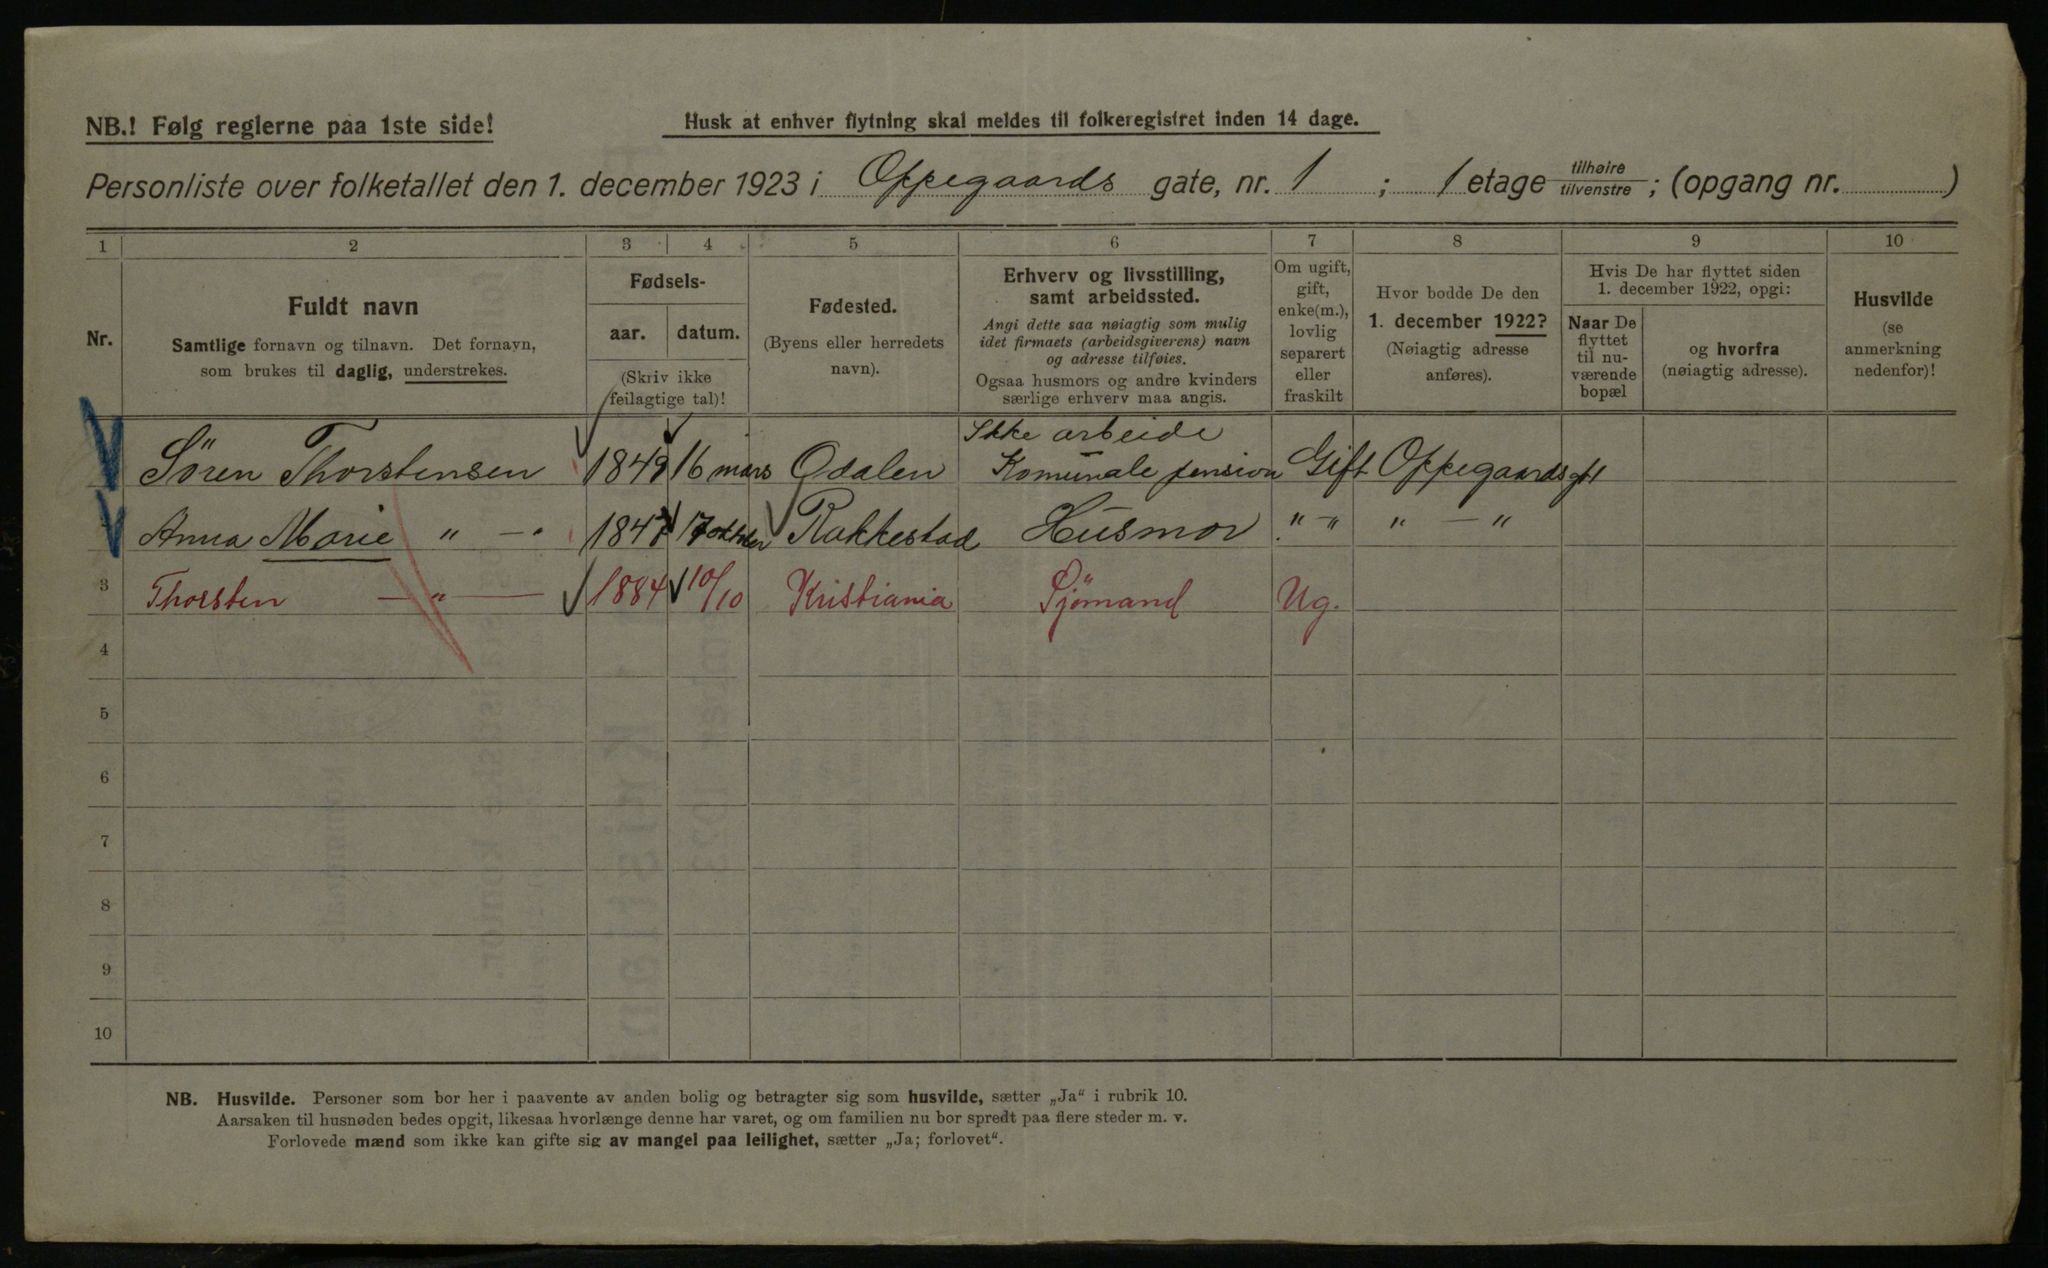 NB.! Følg reglerne paa 1ste side!
Husk at enhver flytning skal meldes til folkeregistret inden 14 dage.
Personliste over folketallet den 1. december 1923 i Oppegaards gate, nr. 1 ; 1 etage tilhøire tilvenstre ; (opgang nr. )
1 2 3 4 5 6 7 8 9 10
Nr.
Fuldt navn
Samtlige fornavn og tilnavn. Det fornavn,
som brukes til daglig, understrekes.
Fødsels-
aar. datum.
(Skriv ikke
feilagtige tal)!
Fødested.
(Byens eller herredets
navn).
Erhverv og livsstilling,
samt arbeidssted.
Angi dette saa nøiagtig som mulig
idet firmaets (arbeidsgiverens) navn
og adresse tilføies.
Ogsaa husmors og andre kvinders
særlige erhverv maa angis.
Om ugift,
gift,
enke(m.),
lovlig
separert
eller
fraskilt
Hvor bodde De den
1. december 1922?
(Nøiagtig adresse
anføres).
Hvis De har flyttet siden
1. december 1922, opgi:
Naar De
flyttet
til nu-
værende
bopæl
og hvorfra
(nøiagtig adresse).
Husvilde
(se
anmerkning
nedenfor)!
Ikke arbeide
Sören Thorstensen 1849 16 mars Odalen Komunale pension Gift Oppegaardsgt 1
Anna Marie " — " 1847 17 Rakkestad Husmor " — " " — "
3 Thorsten — " — 1884 10/10 Kristiania Sjömand Ug.
4
5
6
7
8
9
10
NB. Husvilde. Personer som bor her i paavente av anden bolig og betragter sig som husvilde, sætter „Ja“ i rubrik 10.
Aarsaken til husnøden bedes opgit, likesaa hvorlænge denne har varet, og om familien nu bor spredt paa flere steder m. v.
Forlovede mænd som ikke kan gifte sig av mangel paa leilighet, sætter „Ja; forlovet“.